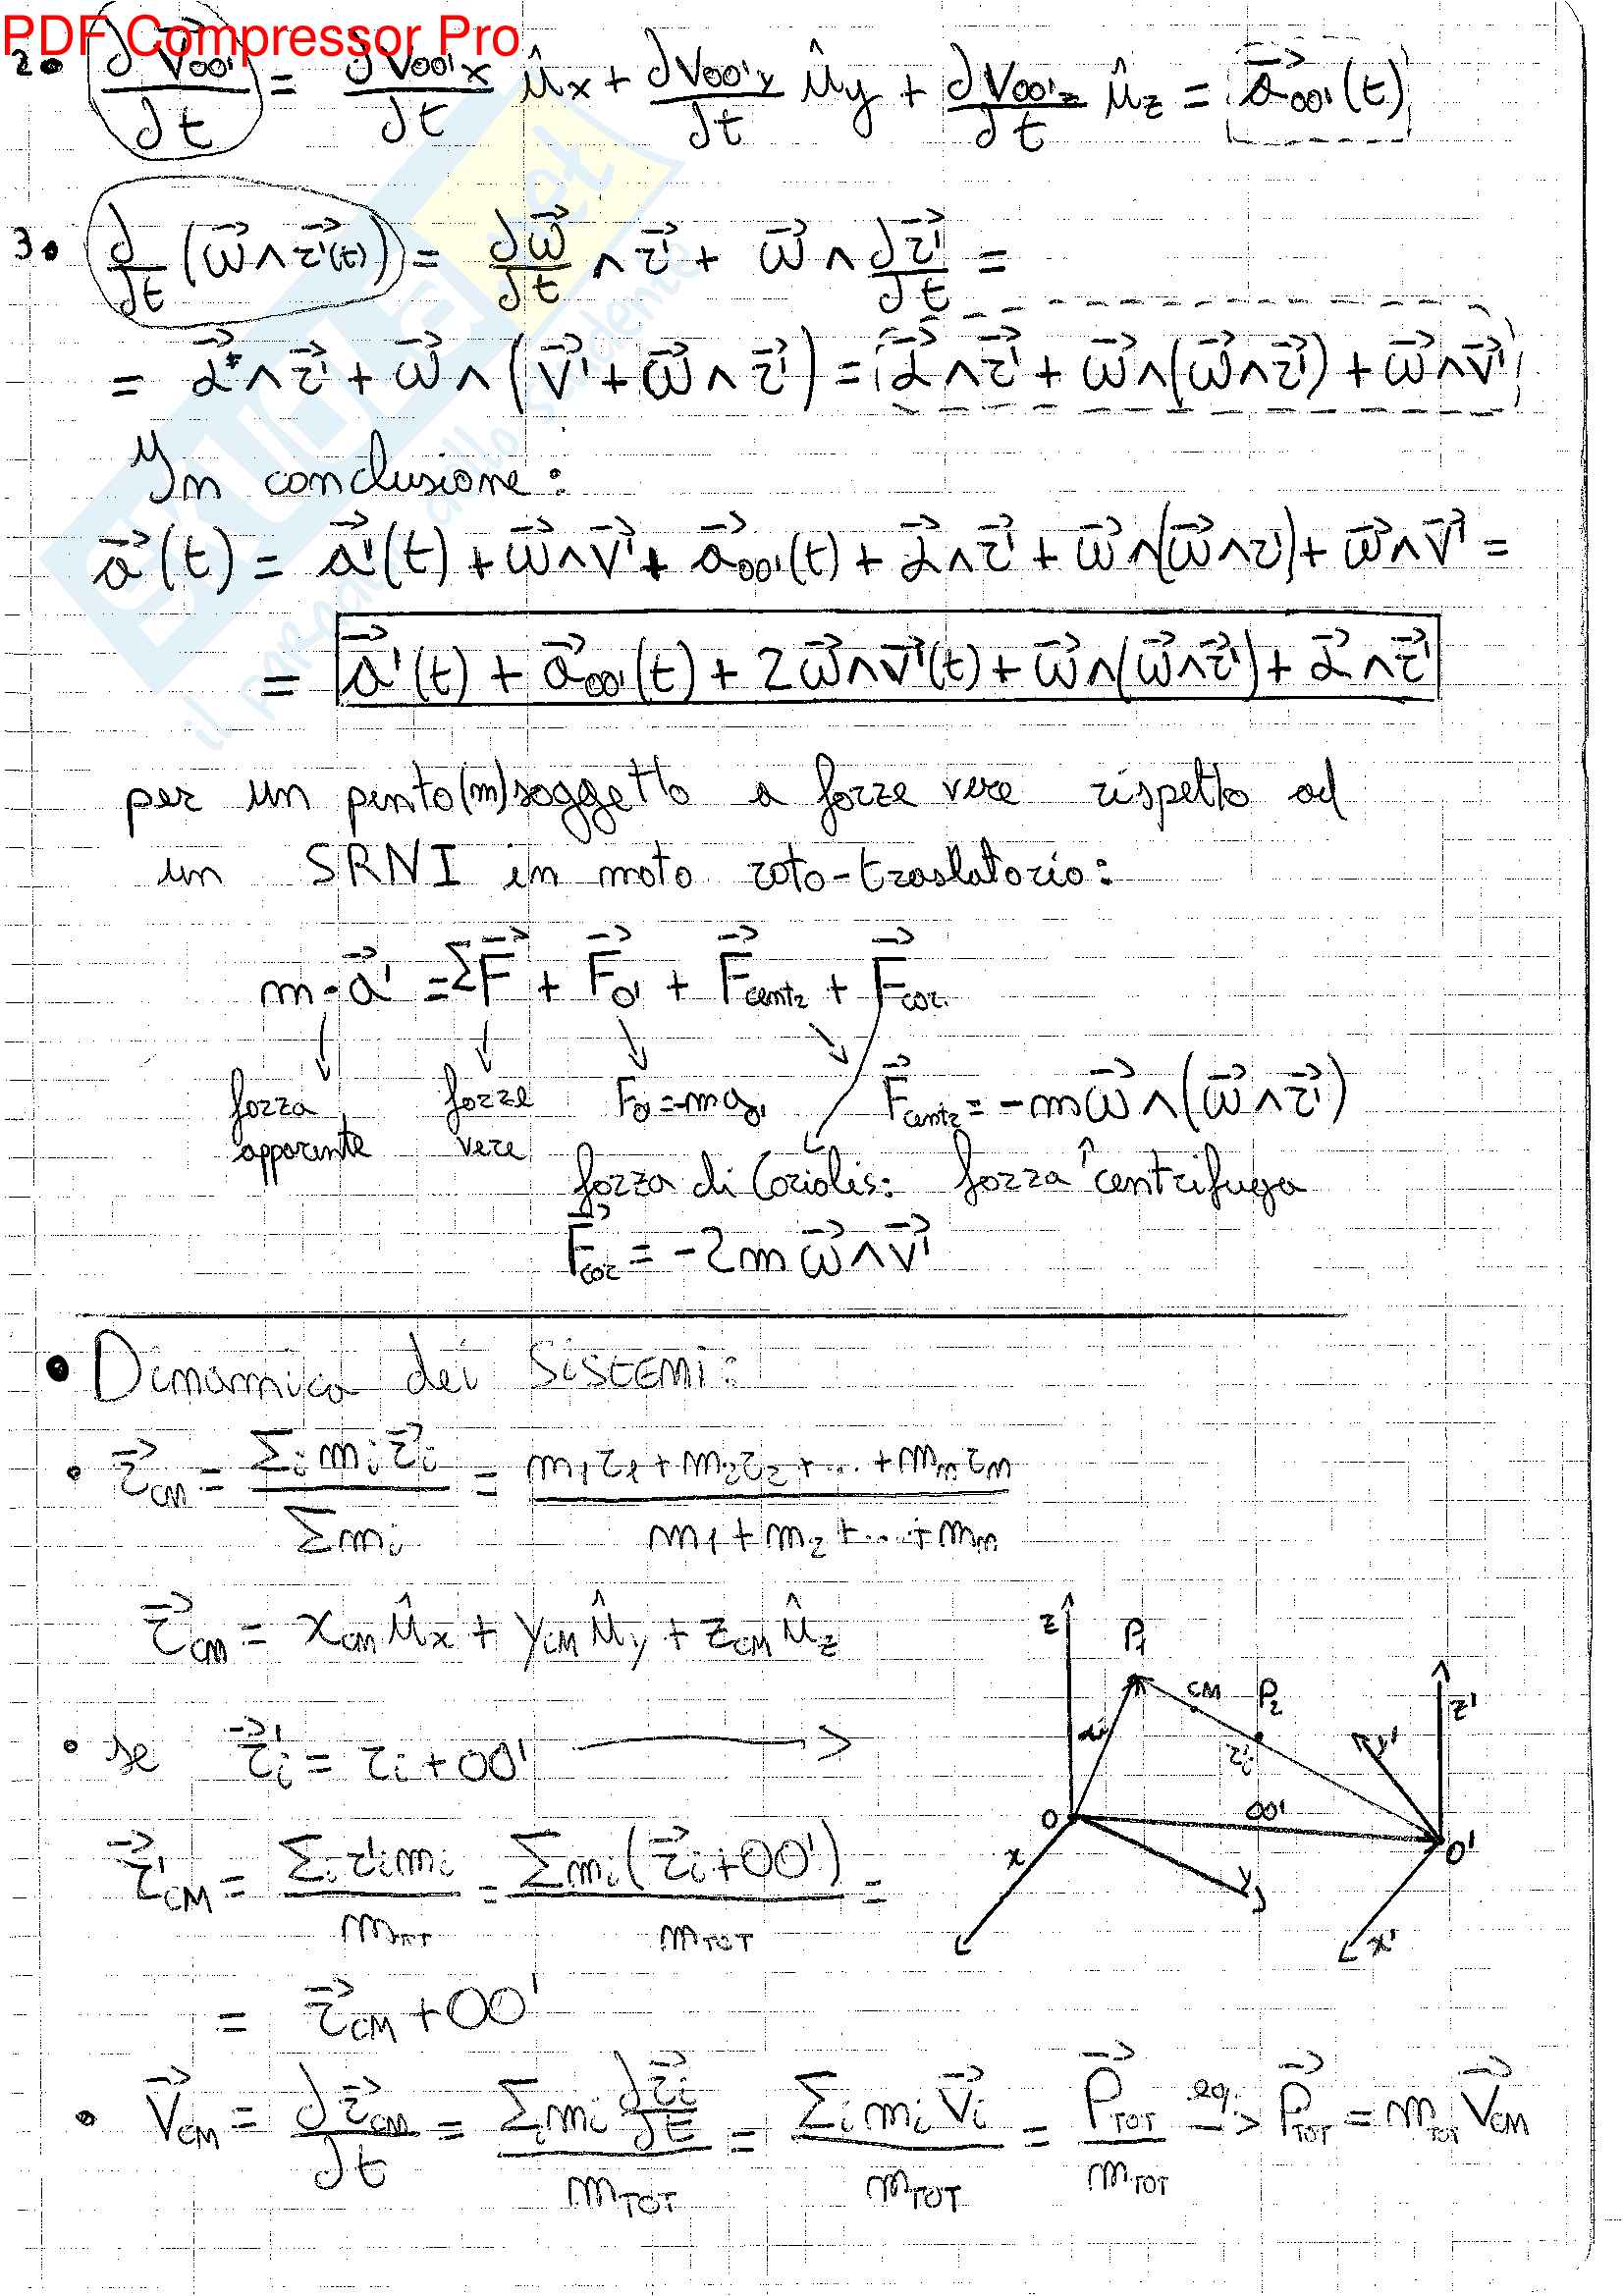 PDF Compressor Pro
2. d v⃗oo' / dt = d voo'x / dt ûx + d voo'y / dt ûy + d voo'z / dt ûz = a⃗oo'(t)
3. d/dt (ω⃗ ∧ r⃗'(t)) = dω⃗/dt ∧ r⃗' + ω⃗ ∧ dr⃗'/dt =
= α⃗ ∧ r⃗' + ω⃗ ∧ (v⃗' + ω⃗ ∧ r⃗') = α⃗ ∧ r⃗' + ω⃗ ∧ (ω⃗ ∧ r⃗') + ω⃗ ∧ v⃗'
In conclusione:
a⃗(t) = a⃗'(t) + ω⃗ ∧ v⃗' + a⃗oo'(t) + α⃗ ∧ r⃗' + ω⃗ ∧ (ω⃗ ∧ r') + ω⃗ ∧ v⃗' =
= a⃗'(t) + a⃗oo'(t) + 2ω⃗ ∧ v⃗'(t) + ω⃗ ∧ (ω⃗ ∧ r⃗') + α⃗ ∧ r⃗'
per un punto(m) soggetto a forze vere rispetto ad
un SRNI in moto roto-traslatorio:
m · a⃗' = Σ F⃗ + F⃗o' + F⃗centr + F⃗cor.
forza apparente
forze vere
Fo' = -mao'
F⃗centr = -mω⃗ ∧ (ω⃗ ∧ r⃗')
forza di Coriolis: forza centrifuga
F⃗cor = -2m ω⃗ ∧ v⃗'
• Dinamica dei SiSTEMi:
• r⃗CM = Σi mi r⃗i / Σ mi = m1r1 + m2r2 + ... + mnrn / m1 + m2 + ... + mn
r⃗CM = xCM ûx + yCM ûy + zCM ûz
• se r⃗'i = ri + OO' →
z P1 CM P2 z' ri r'i y' O OO' O' x y x'
r⃗'CM = Σi r'i mi / mTOT = Σ mi (r⃗i + OO') / mTOT =
= r⃗CM + OO'
• V⃗CM = d r⃗CM / dt = Σi mi d r⃗i/dt / mTOT = Σi mi v⃗i / mTOT = P⃗TOT / mTOT eq. -> P⃗TOT = mTOT V⃗CM